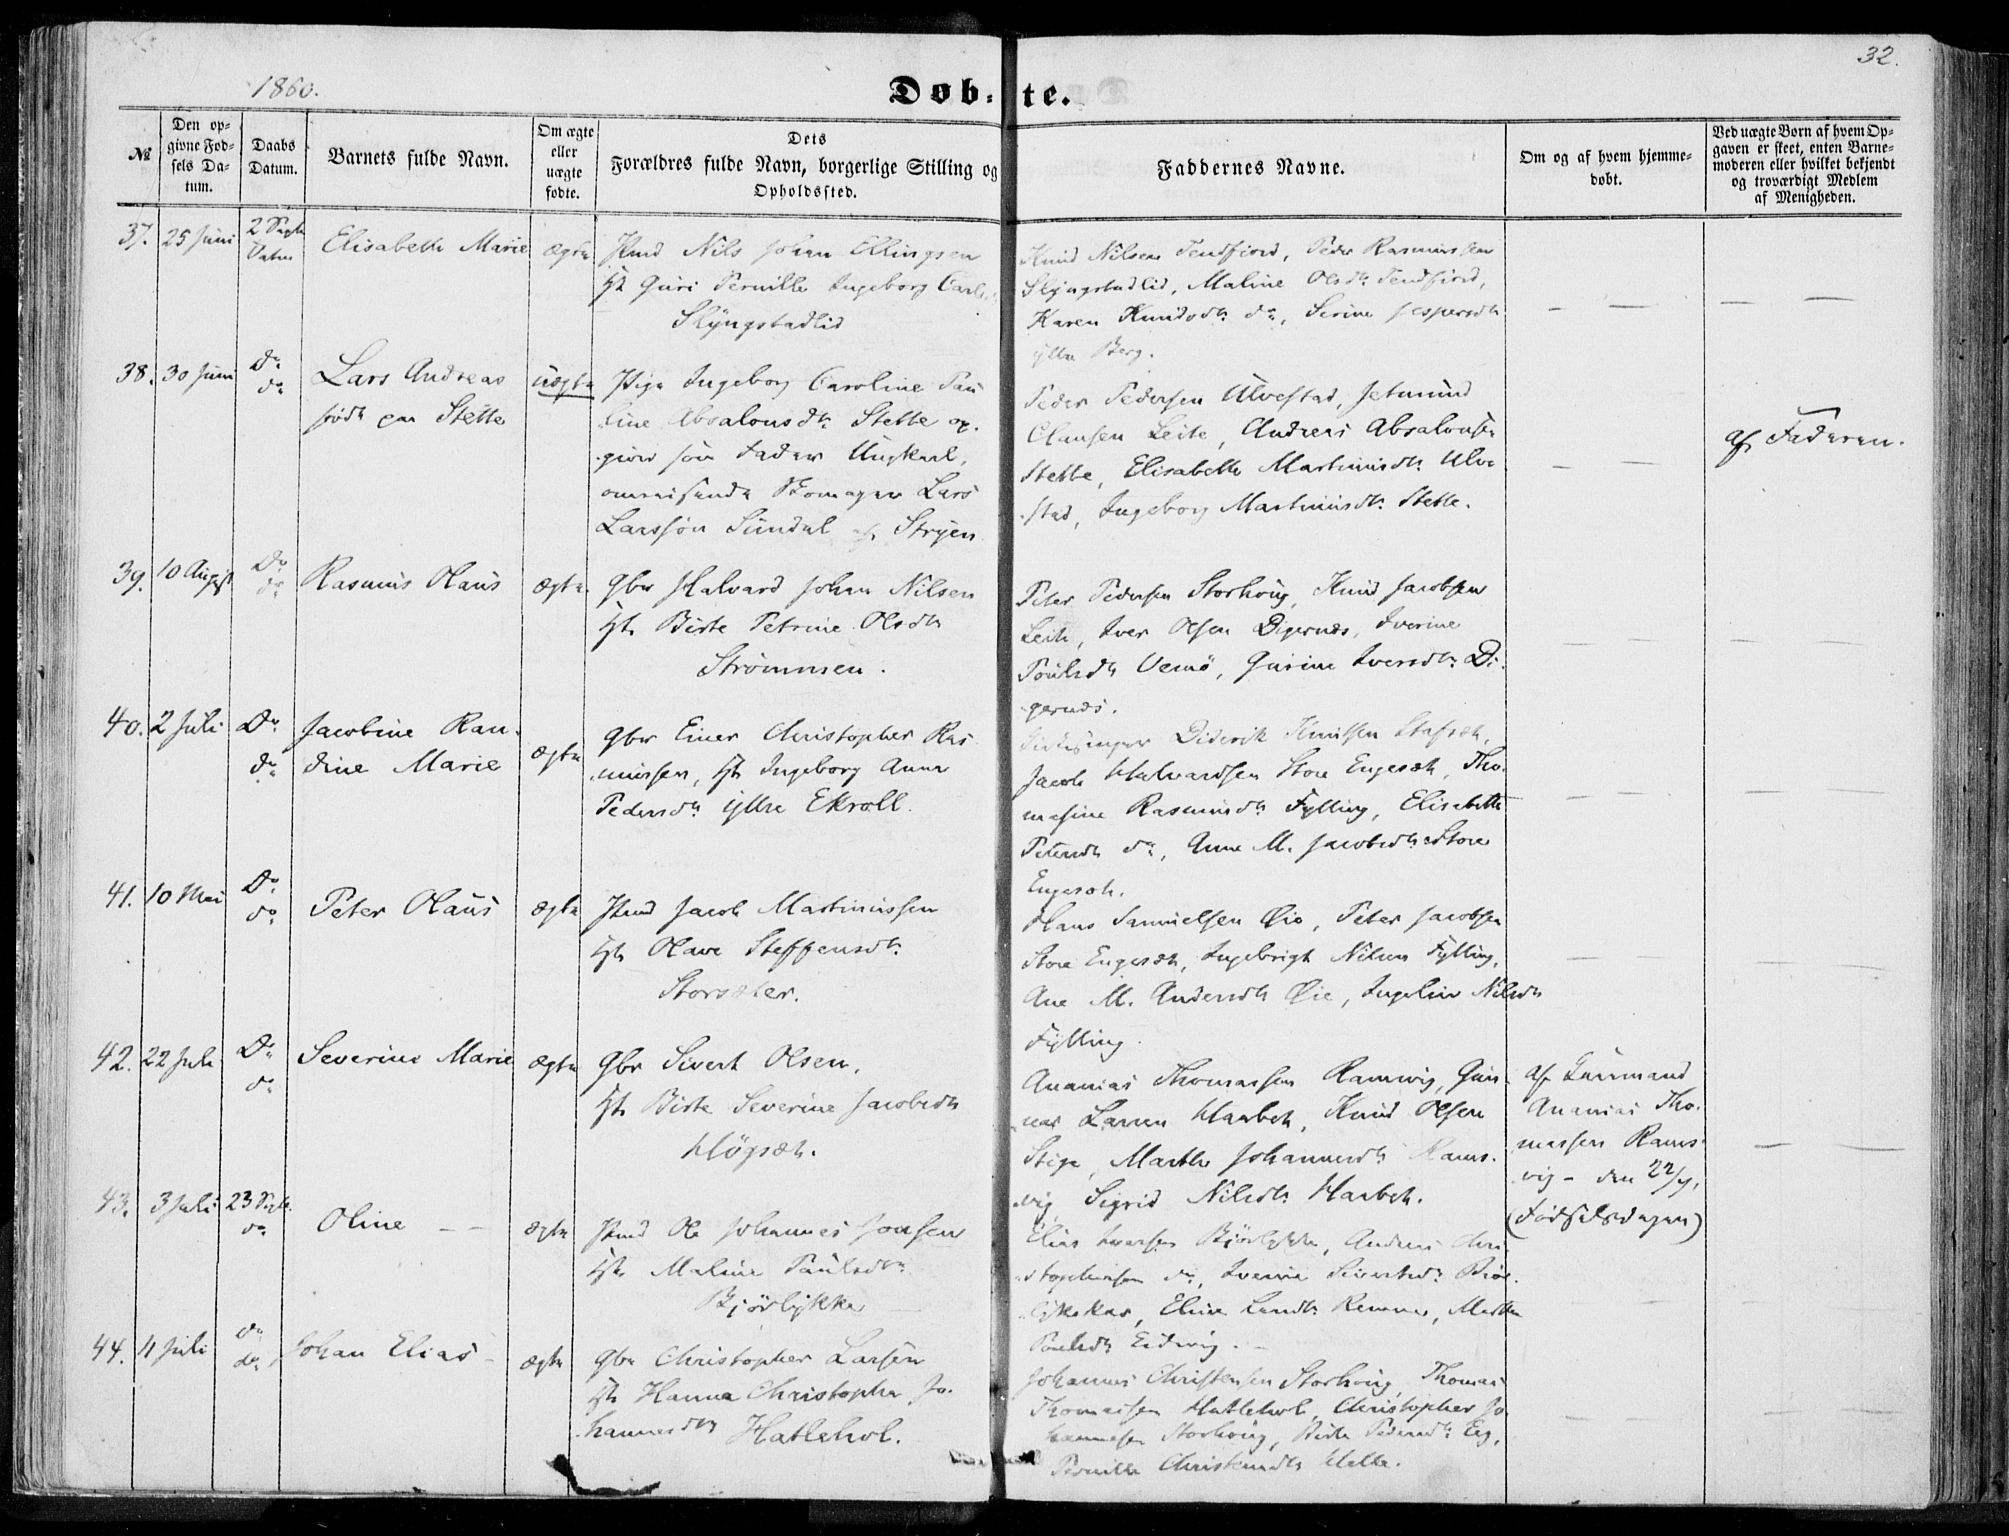 1860.
Døb-te.
32.
№
Den opgivne Fødsels Datum.
Daabs Datum.
Barnets fulde Navn.
Om ægte eller uægte fødte.
Dets Forældres fulde Navn, borgerlige Stilling og Opholdssted.
Faddernes Navne.
Om og af hvem hjemmedøbt.
Ved uægte Børn af hvem Opgaven er skeet, enten Barnemoderen eller hvilket bekjendt og troværdigt Medlem af Menigheden.
37. 25 Juni 2 Septb Vatne Elisabeth Marie ægte
Nils Johan Ellingsen
Guri Pernille Ingeborg
Slyngstadlid
Knud Nilsen Tendfjord, Peder Rasmussen
Slyngstadlid, Maline Olsdtr Tendfjord,
Karen Knudsdtr do, Serine Jespersdtr
ytre Berg.
38. 30 Juni Do do Lars Andreas uægte
født paa Stette
Pige Ingeborg Caroline Pau
line Absalonsdtr Stette op-
giver som Fader Ungkarl,
omreisende Skomager Lars
Larssøn Sundal af Stryen
Peder Pedersen Ulvestad, Jetmund
Clausen Leite, Andreas Absalonsen
Stette, Elisabeth Martinusdtr Ulve
stad, Ingeborg Martinusdtr Stette.
af Faderen.
39. 10 August Do do Rasmus Olaus ægte
Gbr Halvard Johan Nilsen
Hst Birte Petrine Olsdtr
Strømmen.
Peter Pedersen Storhoug, Knud Jacobsen
Leite, Iver Olsen Digernæs, Iverine
Poulsdtr Uemø, Gurine Iversdtr Di-
gernæs.
40. 2 Juli Do do Jacobine Ran-
dine Marie ægte
Gbr Einer Christopher Ras
mussen, Hst Ingeborg Anna
Pedersdtr yttre Ekroll.
Kirkesanger Diderik Knutsen Stafset,
Jacob Halvardsen Store Engesæt, Tho-
masine Rasmusdtr Fylling, Elisabeth
Petersdtr do, Anne M. Jacobsdtr Store
Engesæt.
41. 10 Mai Do do Peter Olaus ægte
Jacob Martinussen
Hst Olave Steffensdtr
Storsæter.
Hans Samuelsen Øie, Peter Jacobsen
Store Engesæt, Ingebrigt Nilsen Fylling,
Ane M. Andersdtr Øie, Nilsdtr
Fylling.
42. 22 Juli Do do Severine Marie ægte
Gbr Sivert Olsen,
Hst Birte Severine Jacobsdtr
Høgsæt.
Ananias Thomassen Ramsvig, Gun
nar Larsen Haabet, Knud Olsen
Stige, Marthe Johannesdtr Rams-
vig Sigrid Nilsdtr Haabet.
af Ananias Tho-
massen Rams
vig - den 22/7,
(Fødselsdagen)
43. 3 Juli 23 Septb. do Oline - - ægte
Ole Johannes Jonsen
Hst Maline Paulsdtr
Bjørlykke
Elias Iversen Bjørlykke, Andreas Chri
stophersen do, Iverine Sivertsdtr Bjør-
lykke, Eline, Marthe
Paulsdtr Eidsvig.
44. 4 Juli do do Johan Elias - ægte
Gbr Christopher Larsen
Hst Hanna Christopha Jo-
hannesdtr Hatlehol.
Johannes Christensen Storhoug, Thomas
Thomassen Hatlehol, Christopher Jo
hannesen Storhoug, Birte Pedersdtr Eeg,
Pernille Christensdtr Helle.